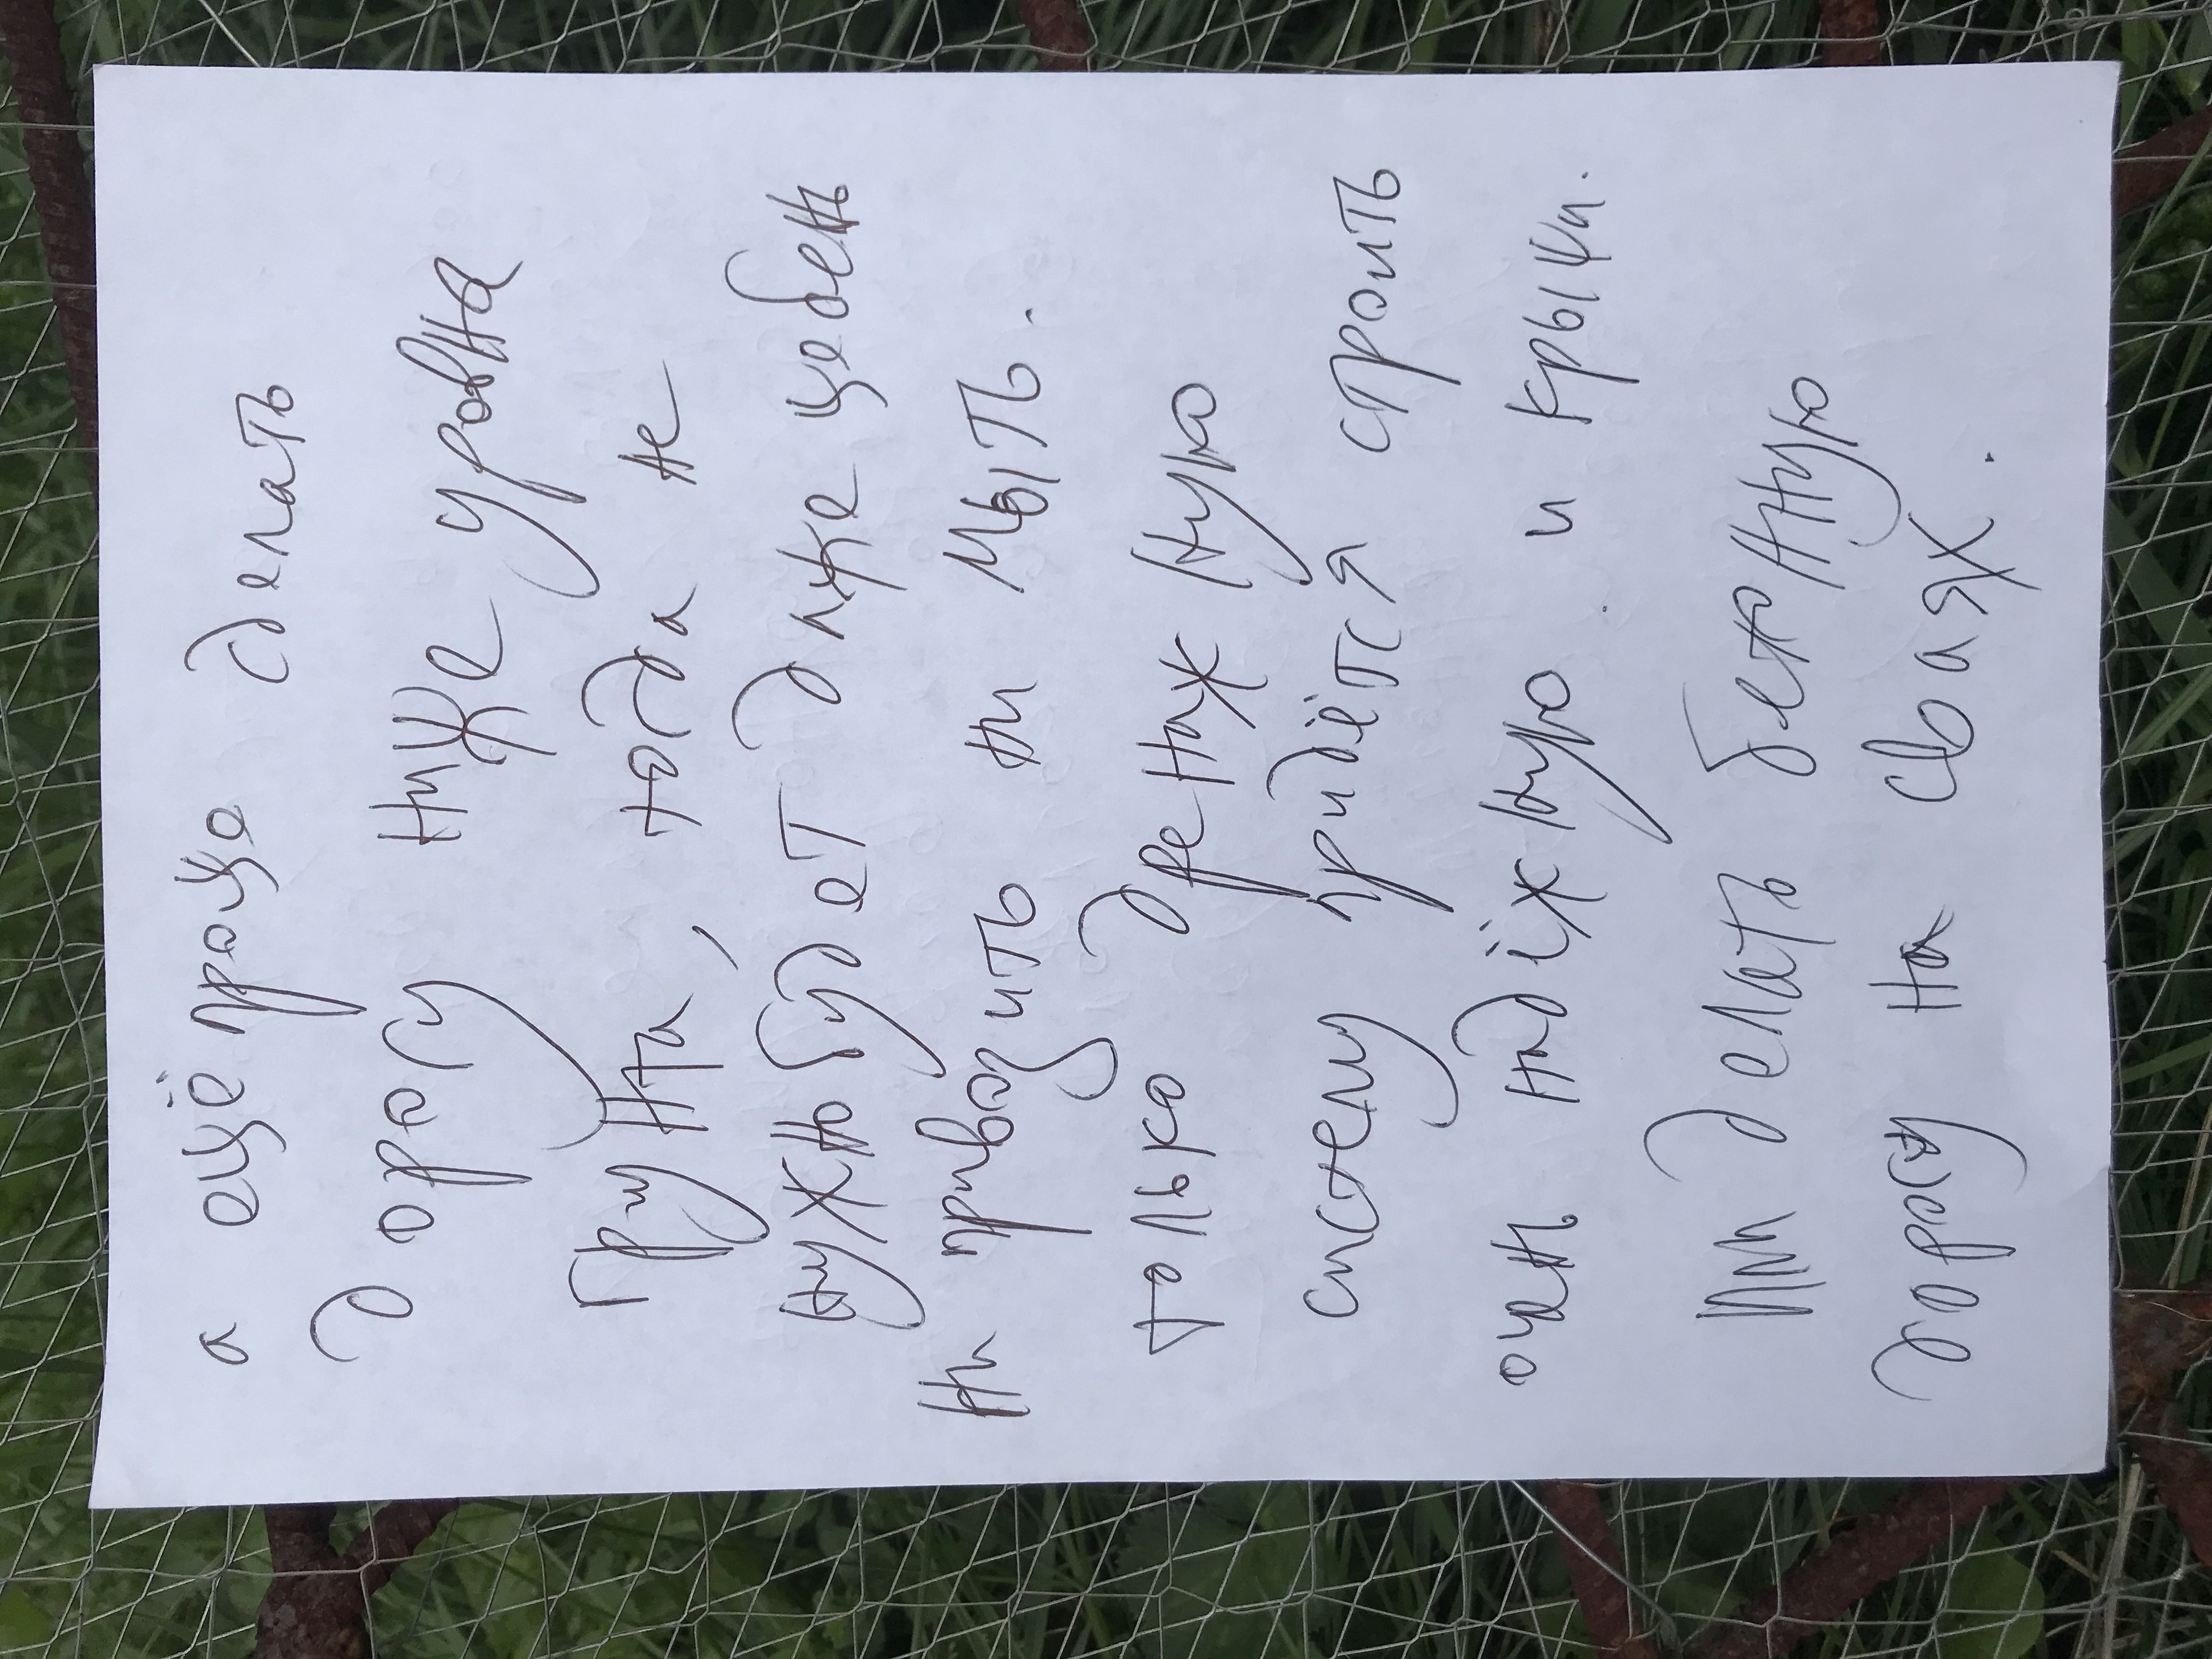 а ещё проще сделать
дорогу ниже уровня
грунта, тогда не
нужно будет даже щебень
ни привозить ни мыть.
только дренажную
систему придётся строить
очень надёжную. и крыша.
или делать бетонную
дорогу на сваях.